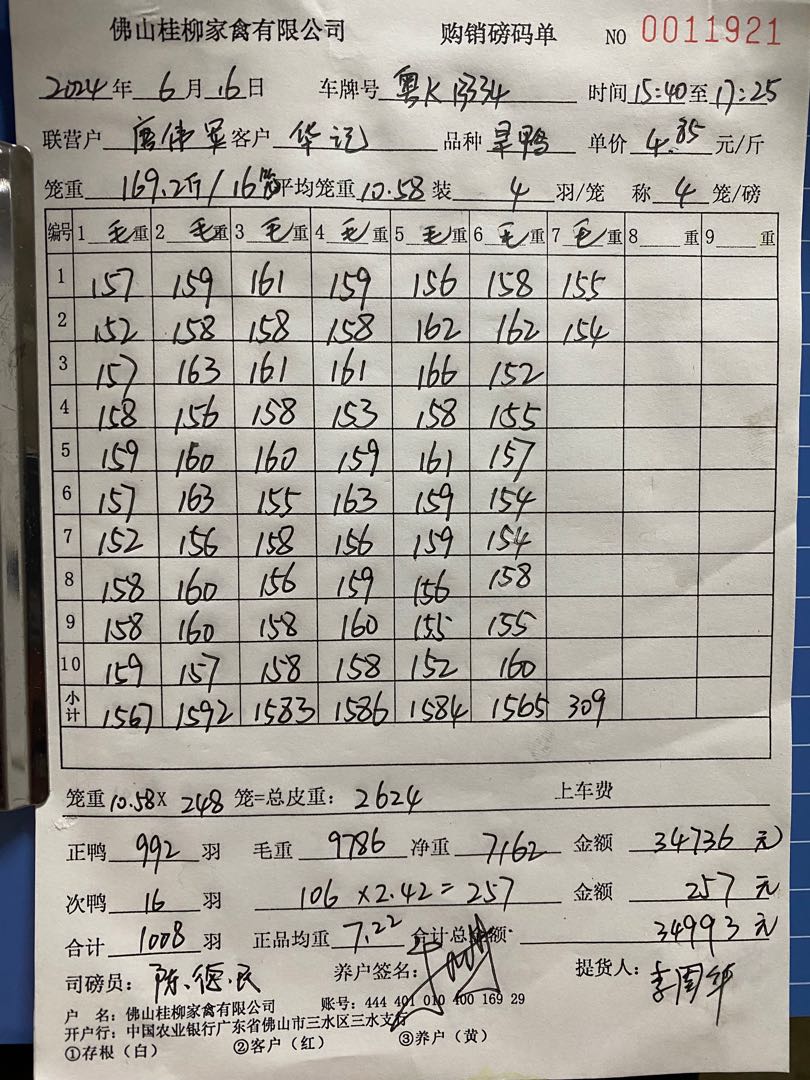 佛山桂柳家禽有限公司 购销磅码单 NO 0011921
2024年 6月 16日 车牌号 粤K13334 时间 15:40至17:25
联营户 唐伟军 客户 华记 品种 旱鸭 单价 4.85 元/斤
笼重 169.2斤/16笼 平均笼重 10.58 装 4 羽/笼 称 4 笼/磅
编号 1 毛重 2 毛重 3 毛重 4 毛重 5 毛重 6 毛重 7 毛重 8 重 9 重
1 157 159 161 159 156 158 155
2 152 158 158 158 162 162 154
3 157 163 161 161 166 152
4 158 156 158 153 158 155
5 159 160 160 159 161 157
6 157 163 155 163 159 154
7 152 156 158 156 159 154
8 158 160 156 159 156 158
9 158 160 158 160 155 155
10 159 157 158 158 152 160
小计 1567 1592 1583 1586 1584 1565 309
笼重 10.58 X 248 笼=总皮重: 2624 上车费
正鸭 992 羽 毛重 9786 净重 7162 金额 34736 元
次鸭 16 羽 106 × 2.42 = 257 金额 257 元
合计 1008 羽 正品均重 7.22 合计总金额 34993 元
司磅员: 陈德民 养户签名: 提货人: 李国华
户 名: 佛山桂柳家禽有限公司 账号: 444 401 010 400 169 29
开户行: 中国农业银行广东省佛山市三水区三水支行
①存根(白) ②客户(红) ③养户(黄)